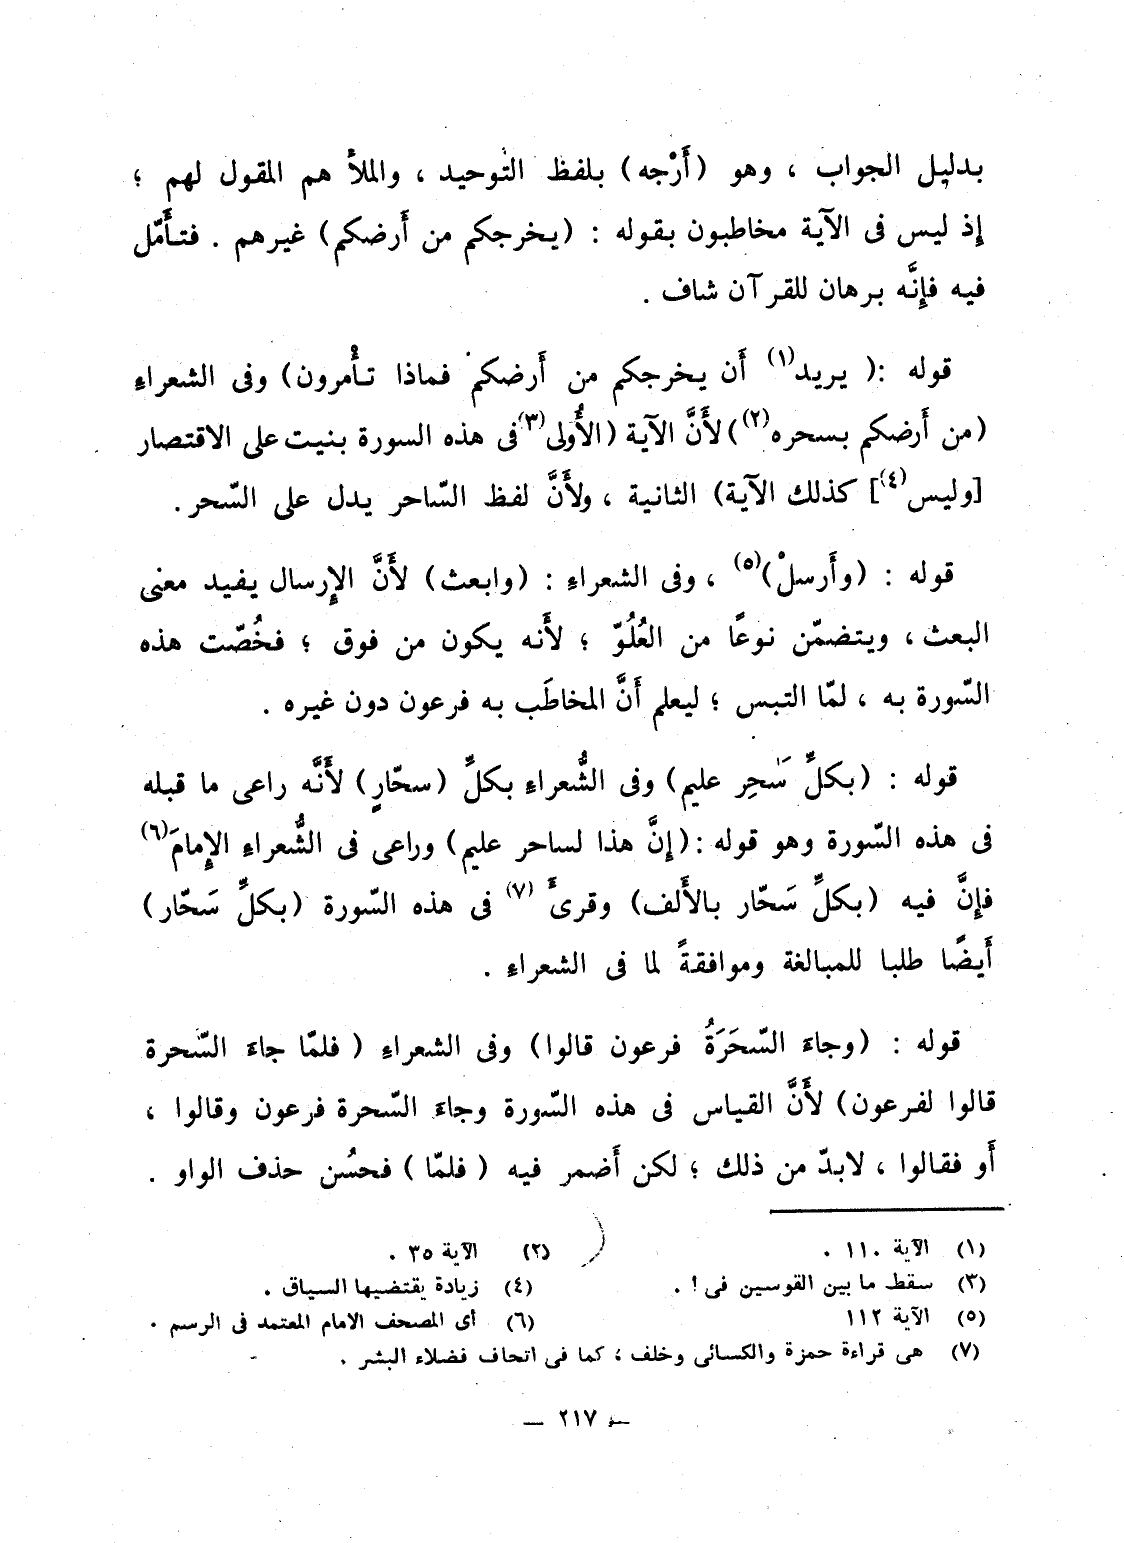 بدليل الجواب ، وهو (أَرْجه) بلفظ التّوحيد ، والملأ هم المقول لهم ؛
إِذ ليس فى الآية مخاطبون بقوله : (يخرجكم من أَرضكم) غيرهم . فتأَمّل
فيه فإِنَّه برهان للقرآن شاف .
قوله :( يريد(١) أَن يخرجكم من أَرضكم فماذا تأْمرون) وفى الشعراءِ
(من أَرضكم بسحره(٢))لأَنَّ الآية (الأُولى(٣)فى هذه السورة بنيت على الاقتصار
[وليس(٤)] كذلك الآية) الثانية ، ولأَنَّ لفظ السّاحر يدل على السّحر .
قوله : (وأَرسلْ)(٥) ، وفى الشعراءِ : (وابعث) لأَنَّ الإِرسال يفيد معنى
البعث ، ويتضمّن نوعًا من العُلُوّ ؛ لأَنه يكون من فوق ؛ فخُصّت هذه
السّورة به ، لمّا التبس ؛ ليعلم أَنَّ المخاطَب به فرعون دون غيره .
قوله : (بكلِّ سَٰحِر عليم) وفى الشُّعراءِ بكلِّ (سحّارٍ) لأَنَّه راعى ما قبله
فى هذه السّورة وهو قوله :(إِنَّ هذا لساحر عليم) وراعى فى الشُّعراءِ الإِمامَ(٦)
فإِنَّ فيه (بكلِّ سَحّار بالأَلف) وقرئَ (٧) فى هذه السّورة (بكلِّ سَحّار)
أَيضًا طلبا للمبالغة وموافقةً لما فى الشعراءِ .
قوله : (وجاءَ السّحَرَةُ فرعون قالوا) وفى الشعراءِ ( فلمّا جاءَ السّحرة
قالوا لفرعون) لأَنَّ القياس فى هذه السّورة وجاءَ السّحرة فرعون وقالوا ،
أَو فقالوا ، لابدّ من ذلك ؛ لكن أَضمر فيه ( فلمّا ) فحسُن حذف الواو .
(١) الآية ١١٠ . (٢) الآية ٣٥ .
(٣) سقط ما بين القوسين فى ا . (٤) زيادة يقتضيها السياق .
(٥) الآية ١١٢ (٦) أى المصحف الامام المعتمد فى الرسم .
(٧) هى قراءة حمزة والكسائى وخلف ، كما فى اتحاف فضلاء البشر .
— ٢١٧ —